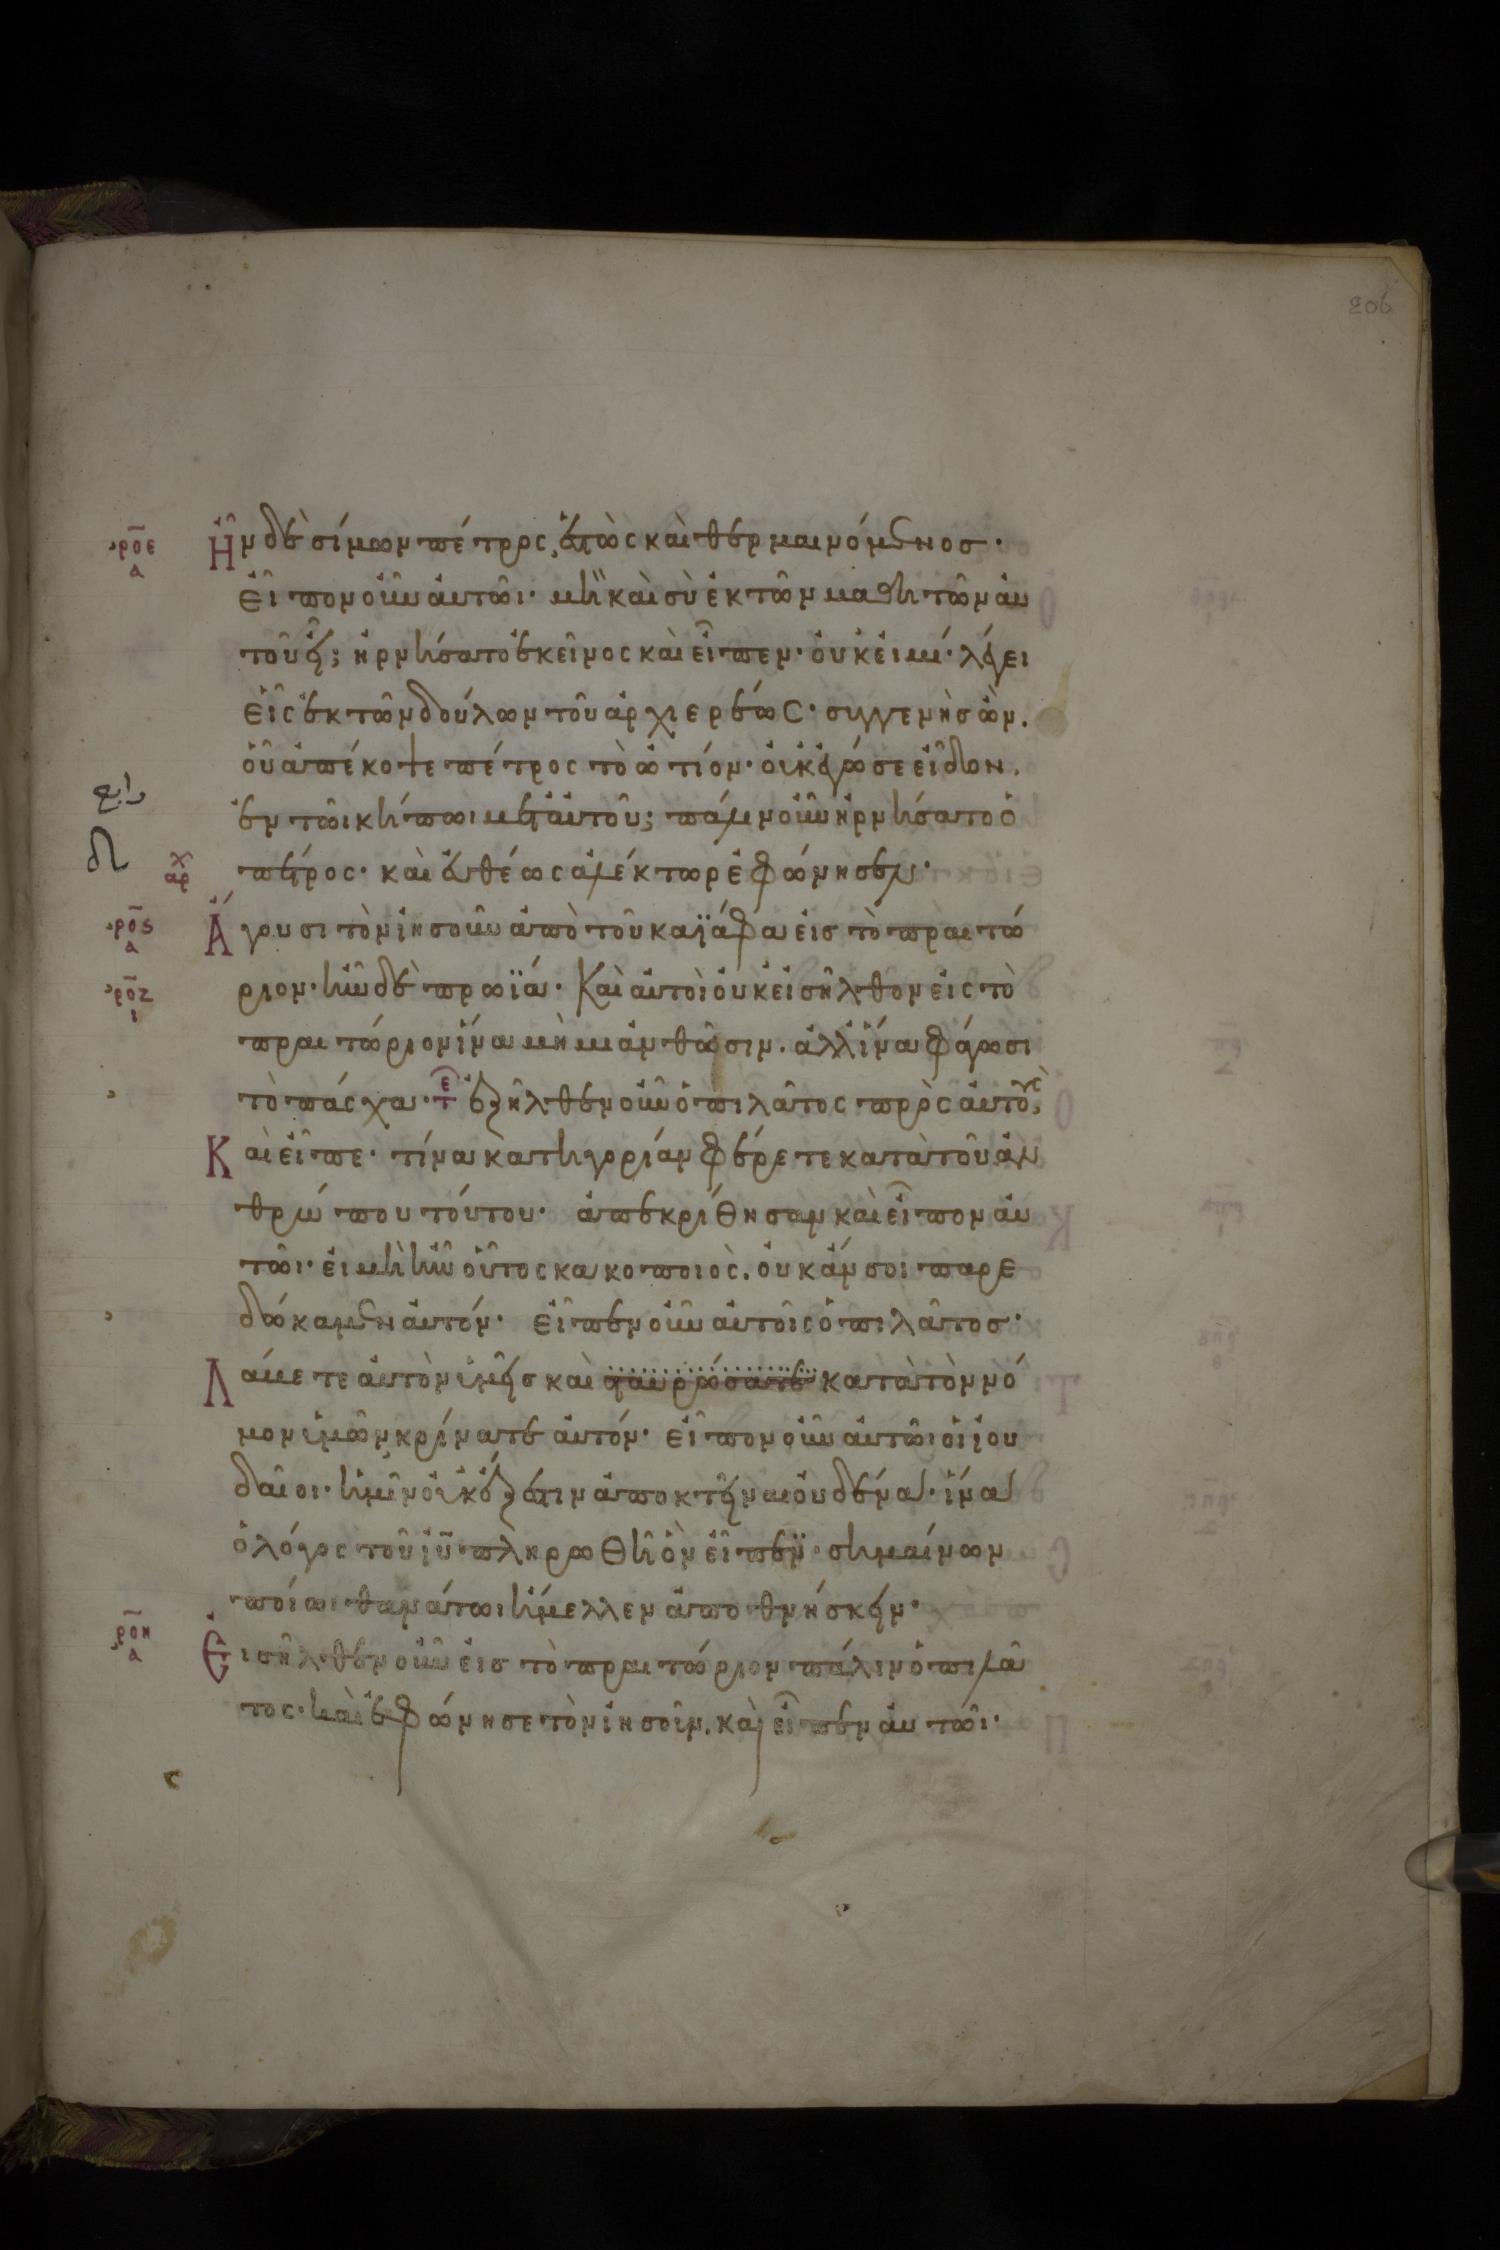 206
ροε α Ἦν δὲ σίμων πέτρος ἑστὼς καὶ θερμαινόμενος·
εἶπον οὖν αὐτῶι· μὴ καὶ σὺ ἐκ τῶν μαθητῶν αὐ
τοῦ εἶ; ἠρνήσατο ἐκεῖνος καὶ εἶπεν· οὐκ εἰμί· λέγει
εἷς ἐκ τῶν δούλων τοῦ ἀρχιερέως· συγγενὴς ὢν.
οὗ ἀπέκοψε πέτρος τὸ ὠτίον· οὐκ ἐγώ σε εἶδον.
ἐν τῶι κήπωι μετ αὐτοῦ; πάλιν οὖν ἠρνήσατο ὁ
πέτρος· καὶ εὐθέως ἀλέκτωρ ἐφώνησεν·
ρος α Ἄγουσι τὸν ἰησοῦν ἀπὸ τοῦ καϊάφα εἰς τὸ πραιτώ
ροζ ι ριον· ἦν δὲ πρωϊά· Καὶ αὐτοὶ οὐκ εἰσῆλθον εἰς τὸ
πραιτώριον ἵνα μὴ μιανθῶσιν. ἀλλ ἵνα φάγωσι
τὸ πάσχα· ἐξῆλθεν οὖν ὁ πιλᾶτος πρὸς αὐτοὺς,
Καὶ εἶπε· τίνα κατηγορίαν φέρετε κατὰ τοῦ ἀν
θρώπου τούτου· ἀπεκρίθησαν καὶ εἶπον αὐ
τῶι· εἰ μὴ ἦν οὗτος κακοποιὸς. οὐκ ἄν σοι παρε
δώκαμεν αὐτόν· εἶπεν οὖν αὐτοῖς ὁ πιλᾶτος·
Λάβετε αὐτὸν ὑμεῖς καὶ σταυρώσατε κατὰ τὸν νό
μον ὑμῶν κρίνατε αὐτόν· εἶπον οὖν αὐτῶι οἱ ἰου
δαῖοι· ἡμῖν οὐκ ἔξεστιν ἀποκτεῖναι οὐδένα· ἵνα
ὁ λόγος τοῦ ἰῦ πληρωθῆ ὃν εἶπεν· σημαίνων
ποίωι θανάτωι ἤμελλεν ἀποθνήσκειν·
ροη α Εἰσῆλθεν οὖν εἰς τὸ πραιτώριον πάλιν ὁ πιλᾶ
τος· καὶ ἐφώνησε τὸν ἰησοῦν. καὶ εἶπεν αὐτῶι·